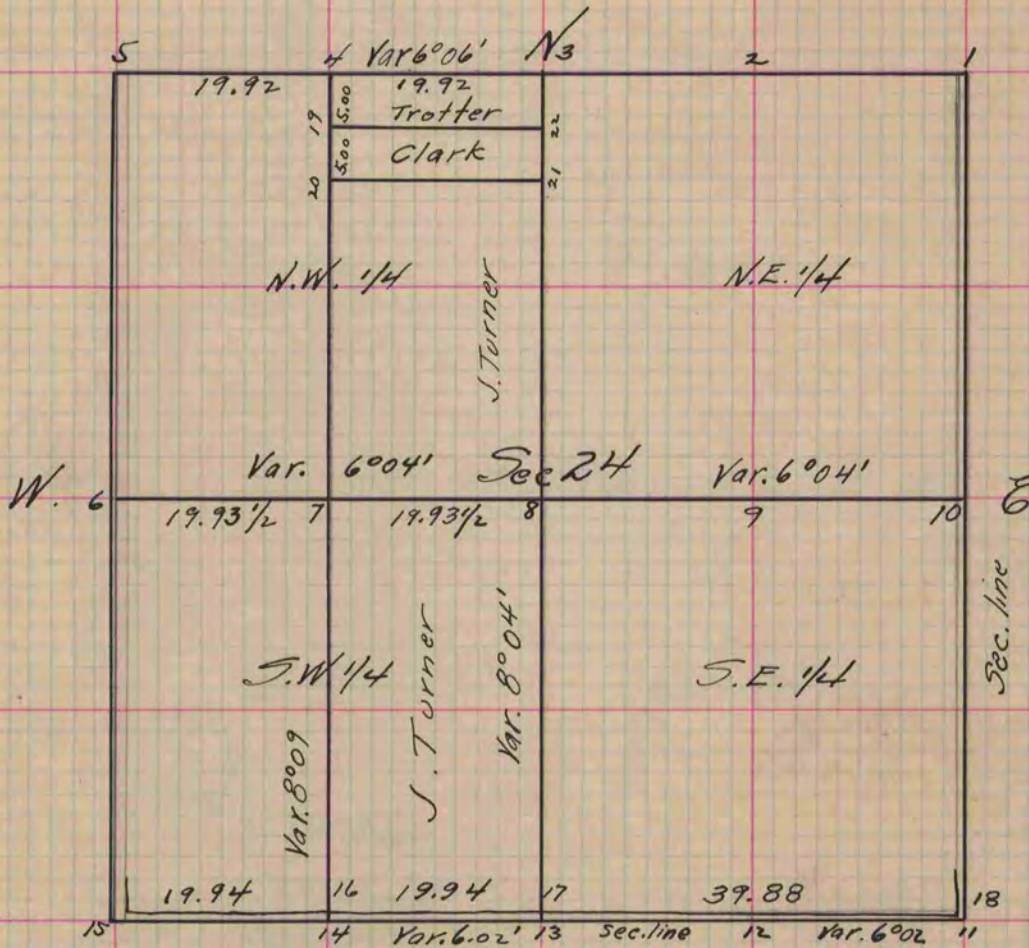 N
5 4 Var 6°06' 3 2 1
19.92 19.92
5.00 Trotter
19 22
5.00 Clark
20 21
N.W. 1/4 N.E. 1/4
J. Turner
Var. 6°04' Sec 24 Var. 6°04'
W. 6 7 8 9 10 E
19.93 1/2 19.93 1/2
Sec. line
S.W 1/4 S.E. 1/4
J. Turner
Var. 8°04'
Var. 8°09
19.94 16 19.94 17 39.88 18
15 14 Var. 6.02' 13 sec. line 12 Var. 6°02 11